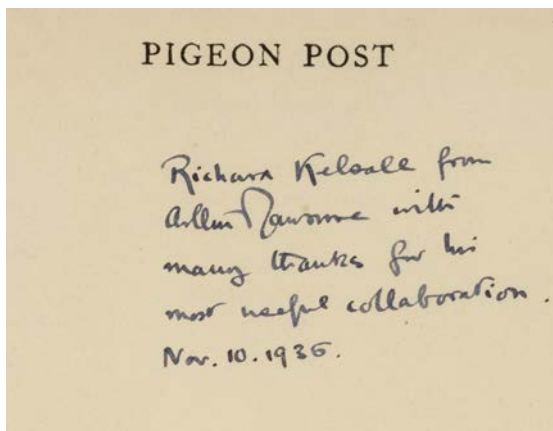 PIGEON POST
Richard Kelsall from
Arthur Ransome with
many thanks for his
most useful collaboration.
Nov. 10. 1936.